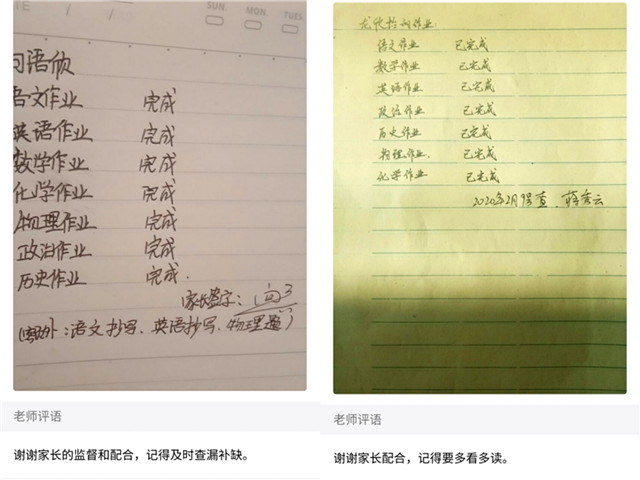 SUN.
MON.
TUE
句语侦
语文作业 完成
英语作业 完成
数学作业 完成
化学作业 完成
物理作业 完成
政治作业 完成
历史作业 完成.
家长签字:
额外:语文抄写、英语抄写、物理题
老师评语
谢谢家长的监督和配合，记得及时查漏补缺。
语文作业 已完成
数学作业 已完成
英语作业 已完成
政治作业 已完成
历史作业 已完成
物理作业. 已完成
化学作业 已完成
2020年2月9号查.
老师评语
谢谢家长配合，记得要多看多读。